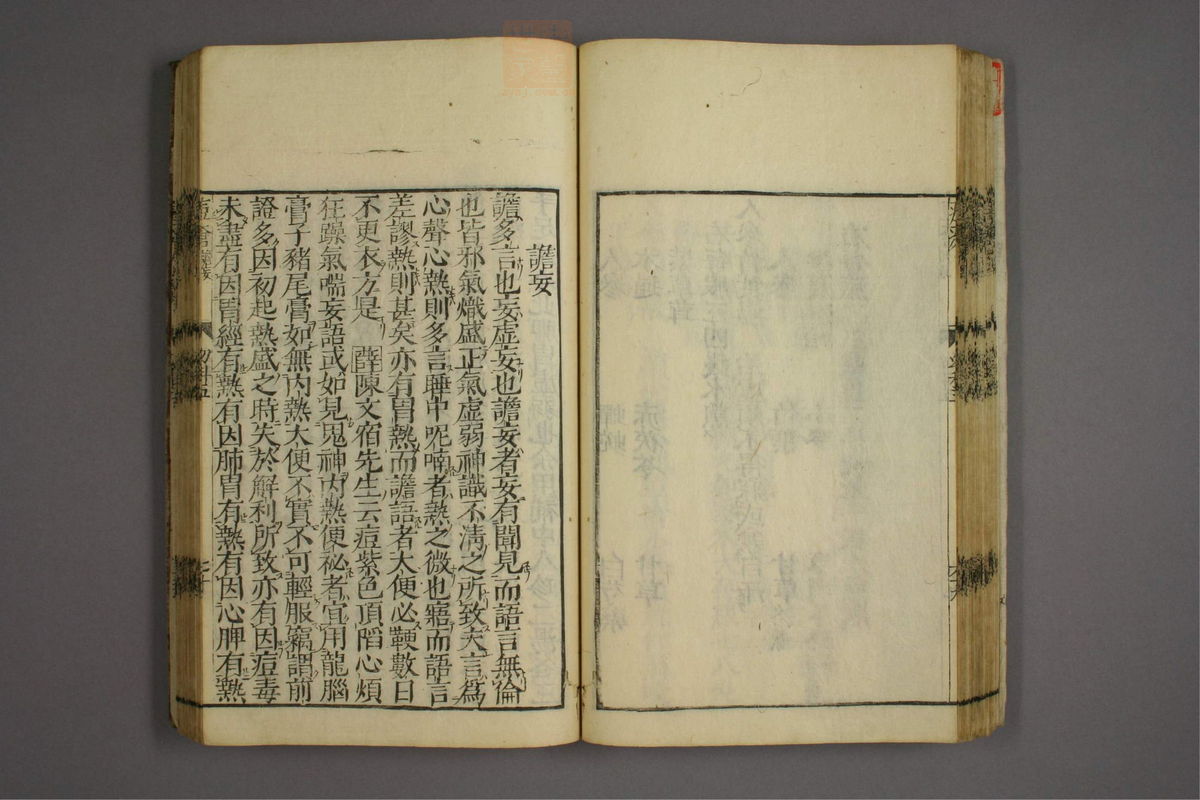 譫妄
譫多言也妄虛妄也譫妄者妄有聞見而語言無倫
也皆邪氣熾盛正氣虛弱神識不淸之所致夫言爲
心聲心熱則多言睡中呢喃者熱之微也寤而語言
差謬熱則甚矣亦有胃熱而譫語者大便必鞕數日
不更衣方是 薛陳文宿先生云痘紫色頂陷心煩
狂躁氣喘妄語或如見鬼神内熱便祕者宜用龍腦
膏子豬尾膏如無内熱大便不實不可輕服竊謂前
證多因初起熱盛之時失於解利所致亦有因痘毒
未盡有因胃經有熱有因肺胃有熱有因心脾有熱